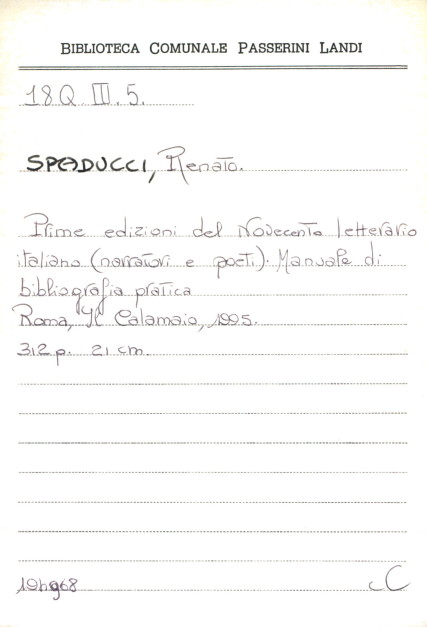 BIBLIOTECA COMUNALE PASSERINI LANDI
18Q. III. 5.
SPADUCCI, Renato.
Prime edizioni del Novecento letterario
italiano (narratori e poeti). Manuale di
bibliografia pratica
Roma, Il Calamaio, 1995.
312 p. 21 cm.
C